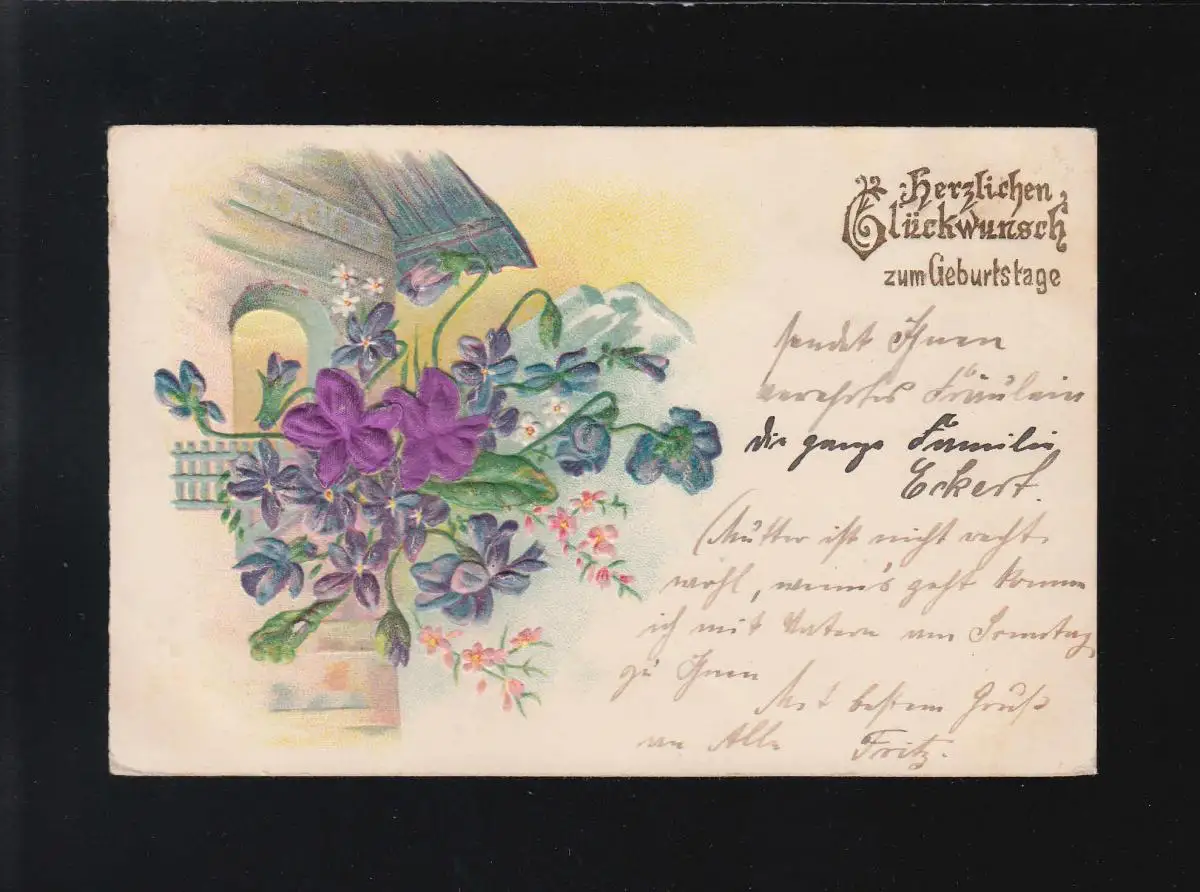 Herzlichen
Glückwunsch
zum Geburtstage
sendet Ihnen
verehrtes Fräulein
die ganze Familie
Eckert.
(Mutter ist nicht recht
wohl, wenn's geht komme
ich mit Vatern am Sonntag
zu Ihnen
Mit bestem Gruß
an Alle Fritz.